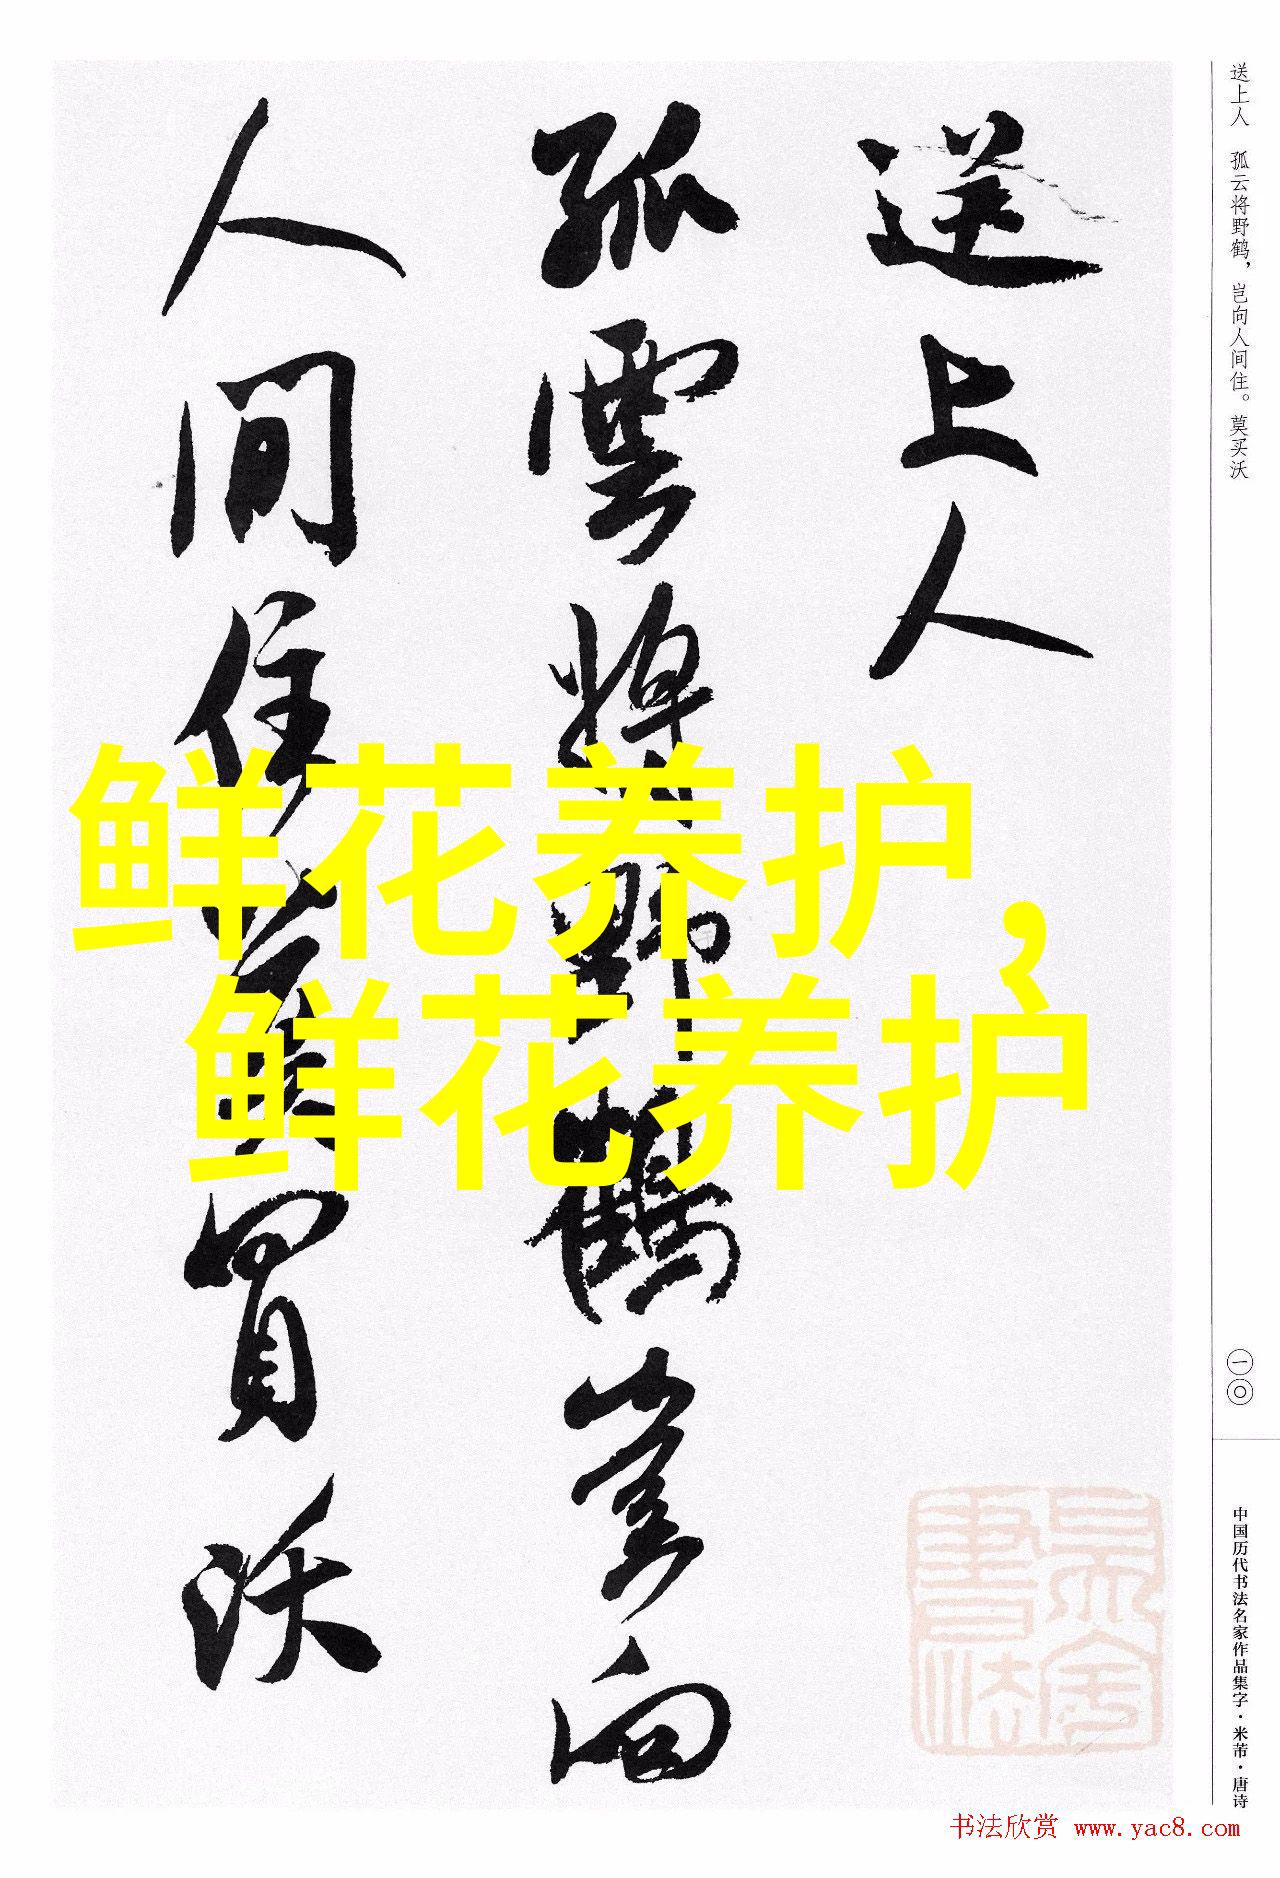 送上人
孤雲將野鶴豈向
人間住莫買沃
鲜花养护，
鲜花养护
送上人 孤云将野鹤，岂向人间住。莫买沃
一〇
中国历代书法名家作品集字·米芾·唐诗
书法欣赏 www.yac8.com